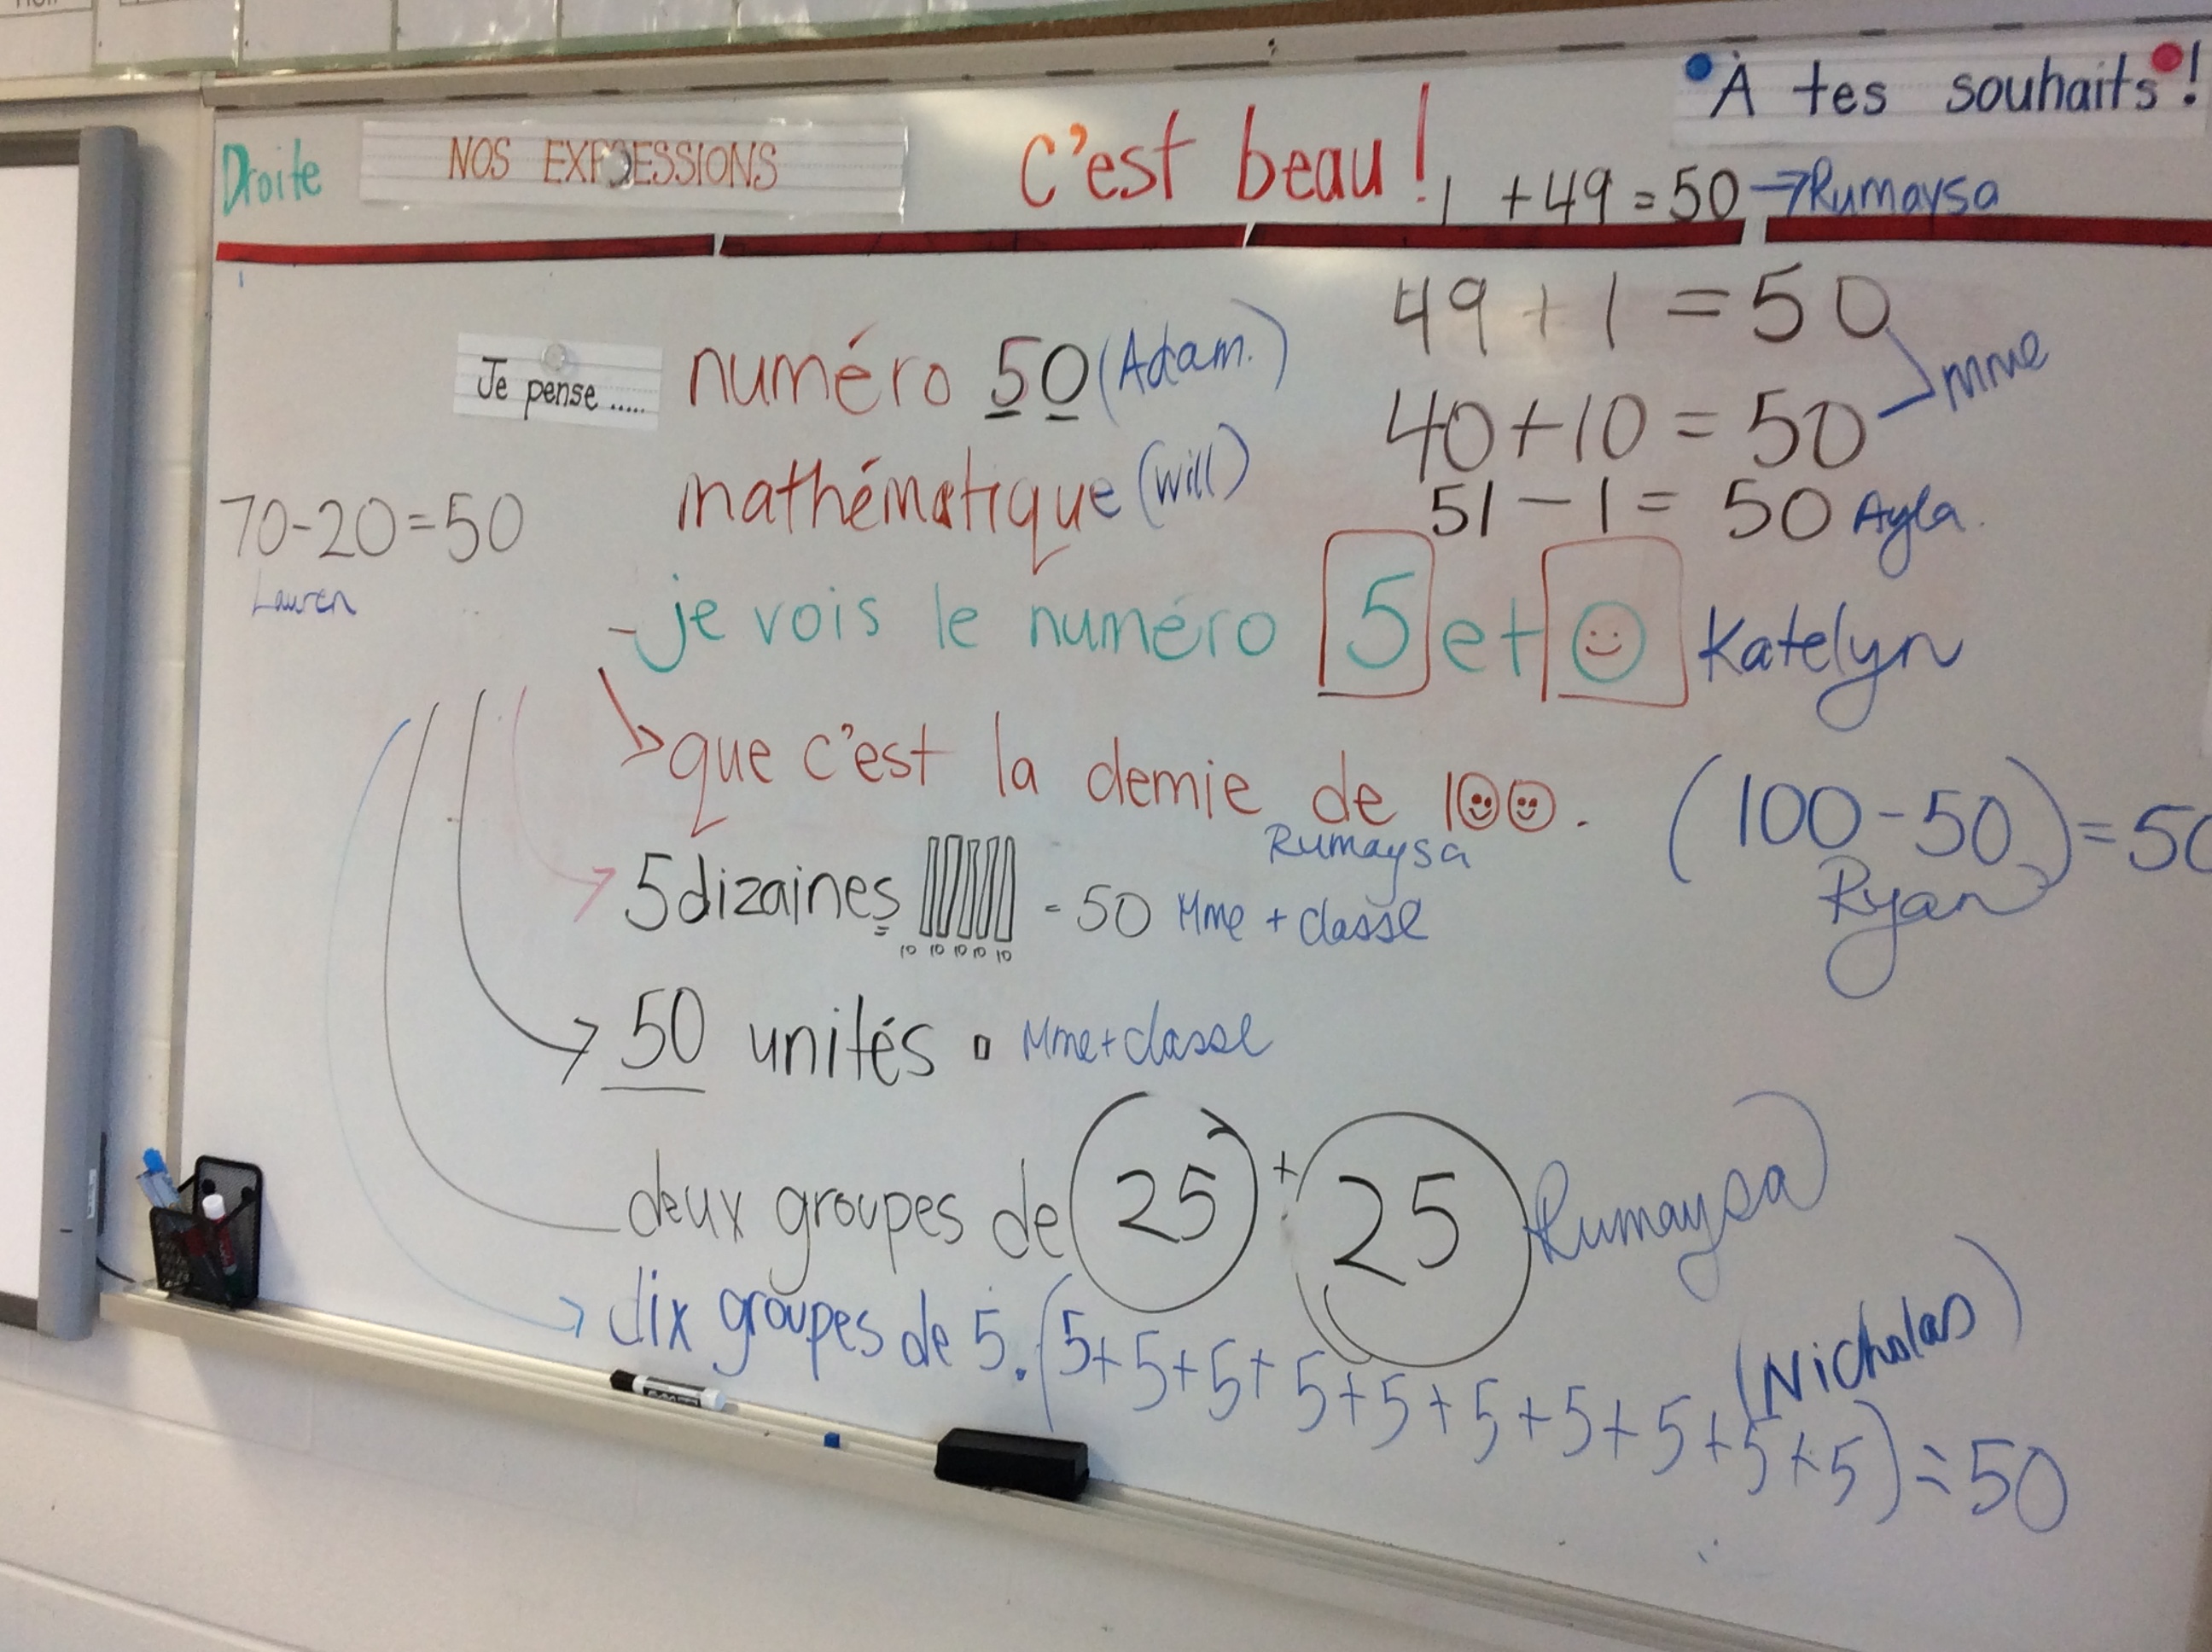 À tes souhaits!
Droite
NOS EXPRESSIONS
C'est beau!
1 + 49 = 50 → Rumaysa
49 + 1 = 50
40 + 10 = 50
mme
51 - 1 = 50 Ayla.
Je pense .....
numéro 50 (Adam.)
mathématique (will)
70-20=50
Lauren
- je vois le numéro 5 et 0 Katelyn
que c'est la demie de 100.
Rumaysa
(100-50) = 50
Ryan
5 dizaines
10 10 10 10 10
= 50 Mme + classe
50 unités Mme + classe
deux groupes de 25 + 25 Rumaysa
dix groupes de 5. (5+5+5+5+5+5+5+5+5+5) = 50
(Nicholas)